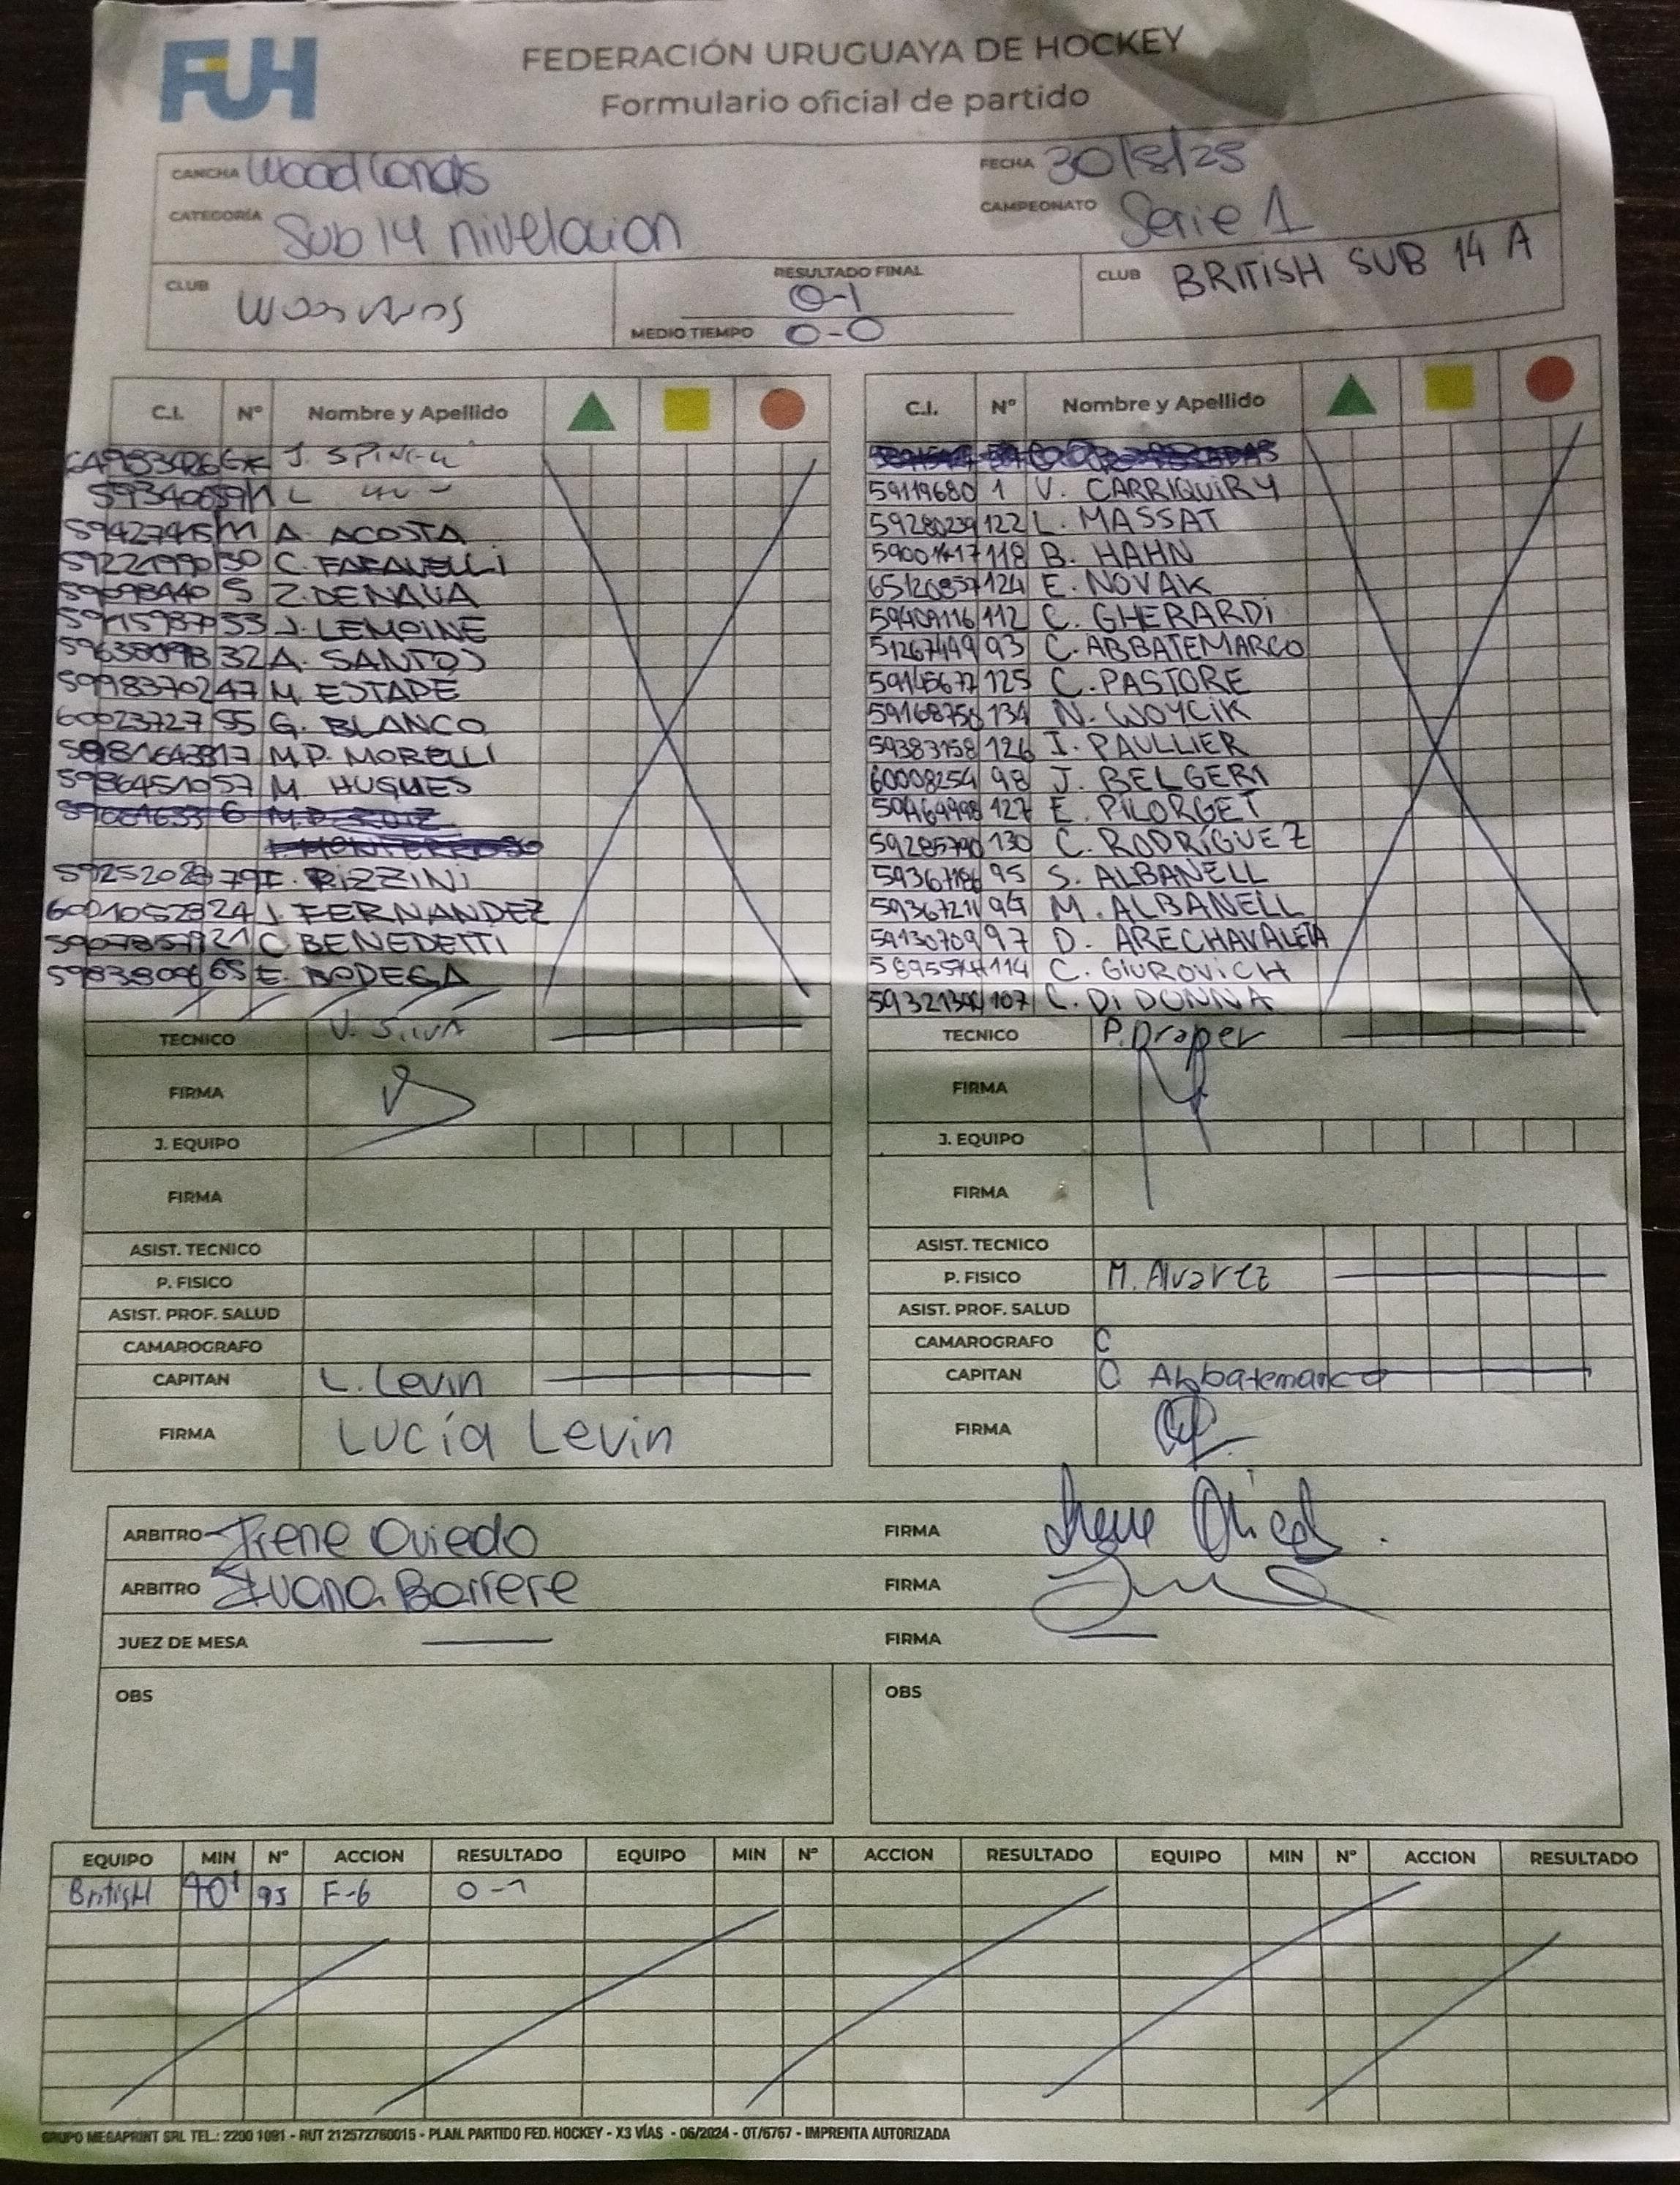 FUH
FEDERACIÓN URUGUAYA DE HOCKEY
Formulario oficial de partido
CANCHA Woodlands FECHA 30/8/25
CATEGORÍA Sub 14 nivelacion CAMPEONATO Serie 1
CLUB RESULTADO FINAL 0-1 CLUB BRITISH SUB 14 A
MEDIO TIEMPO 0-0
C.I. Nº Nombre y Apellido
C.I. Nº Nombre y Apellido
J.
L
A. ACOSTA
30 C.
5 Z. DENAVA
33 J. LEMOINE
32 A. SANTOS
59983702 47 M. ESTAPÉ
60023727 55 G. BLANCO
17 M.P. MORELLI
59864510 57 M. HUGUES
6
79 RIZZINI
24 J. FERNANDEZ
21 C. BENEDETTI
65 E. BODEGA
59119680 1 V. CARRIQUIRY
59280239 122 L. MASSAT
118 B. HAHN
65120857 124 E. NOVAK
59409116 112 C. GHERARDI
51267449 93 C. ABBATEMARCO
59145677 125 C. PASTORE
59168758 134 N. WOYCIK
59383158 126 I. PAULLIER
60008254 98 J. BELGERI
59464998 127 E. PILORGET
59285790 130 C. RODRÍGUEZ
59367186 95 S. ALBANELL
59367211 94 M. ALBANELL
59130709 97 D. ARECHAVALETA
114 C. GIUROVICH
107 C. DI DONNA
TECNICO V. SILVA
FIRMA
J. EQUIPO
FIRMA
ASIST. TECNICO
P. FISICO
ASIST. PROF. SALUD
CAMAROGRAFO
CAPITAN L. Levin
FIRMA Lucía Levin
TECNICO P. Draper
FIRMA
J. EQUIPO
FIRMA
ASIST. TECNICO
P. FISICO M. Alvarez
ASIST. PROF. SALUD
CAMAROGRAFO C
CAPITAN C Abbatemarco
FIRMA
ARBITRO Irene Oviedo FIRMA
ARBITRO Ivana Barrere FIRMA
JUEZ DE MESA FIRMA
OBS OBS
EQUIPO MIN Nº ACCION RESULTADO EQUIPO MIN Nº ACCION RESULTADO EQUIPO MIN Nº ACCION RESULTADO
British 40' 95 F-6 0-1
GRUPO MEGAPRINT SRL TEL.: 2200 1091 - RUT 212572760015 - PLAN. PARTIDO FED. HOCKEY - X3 VÍAS - 06/2024 - OT/6767 - IMPRENTA AUTORIZADA